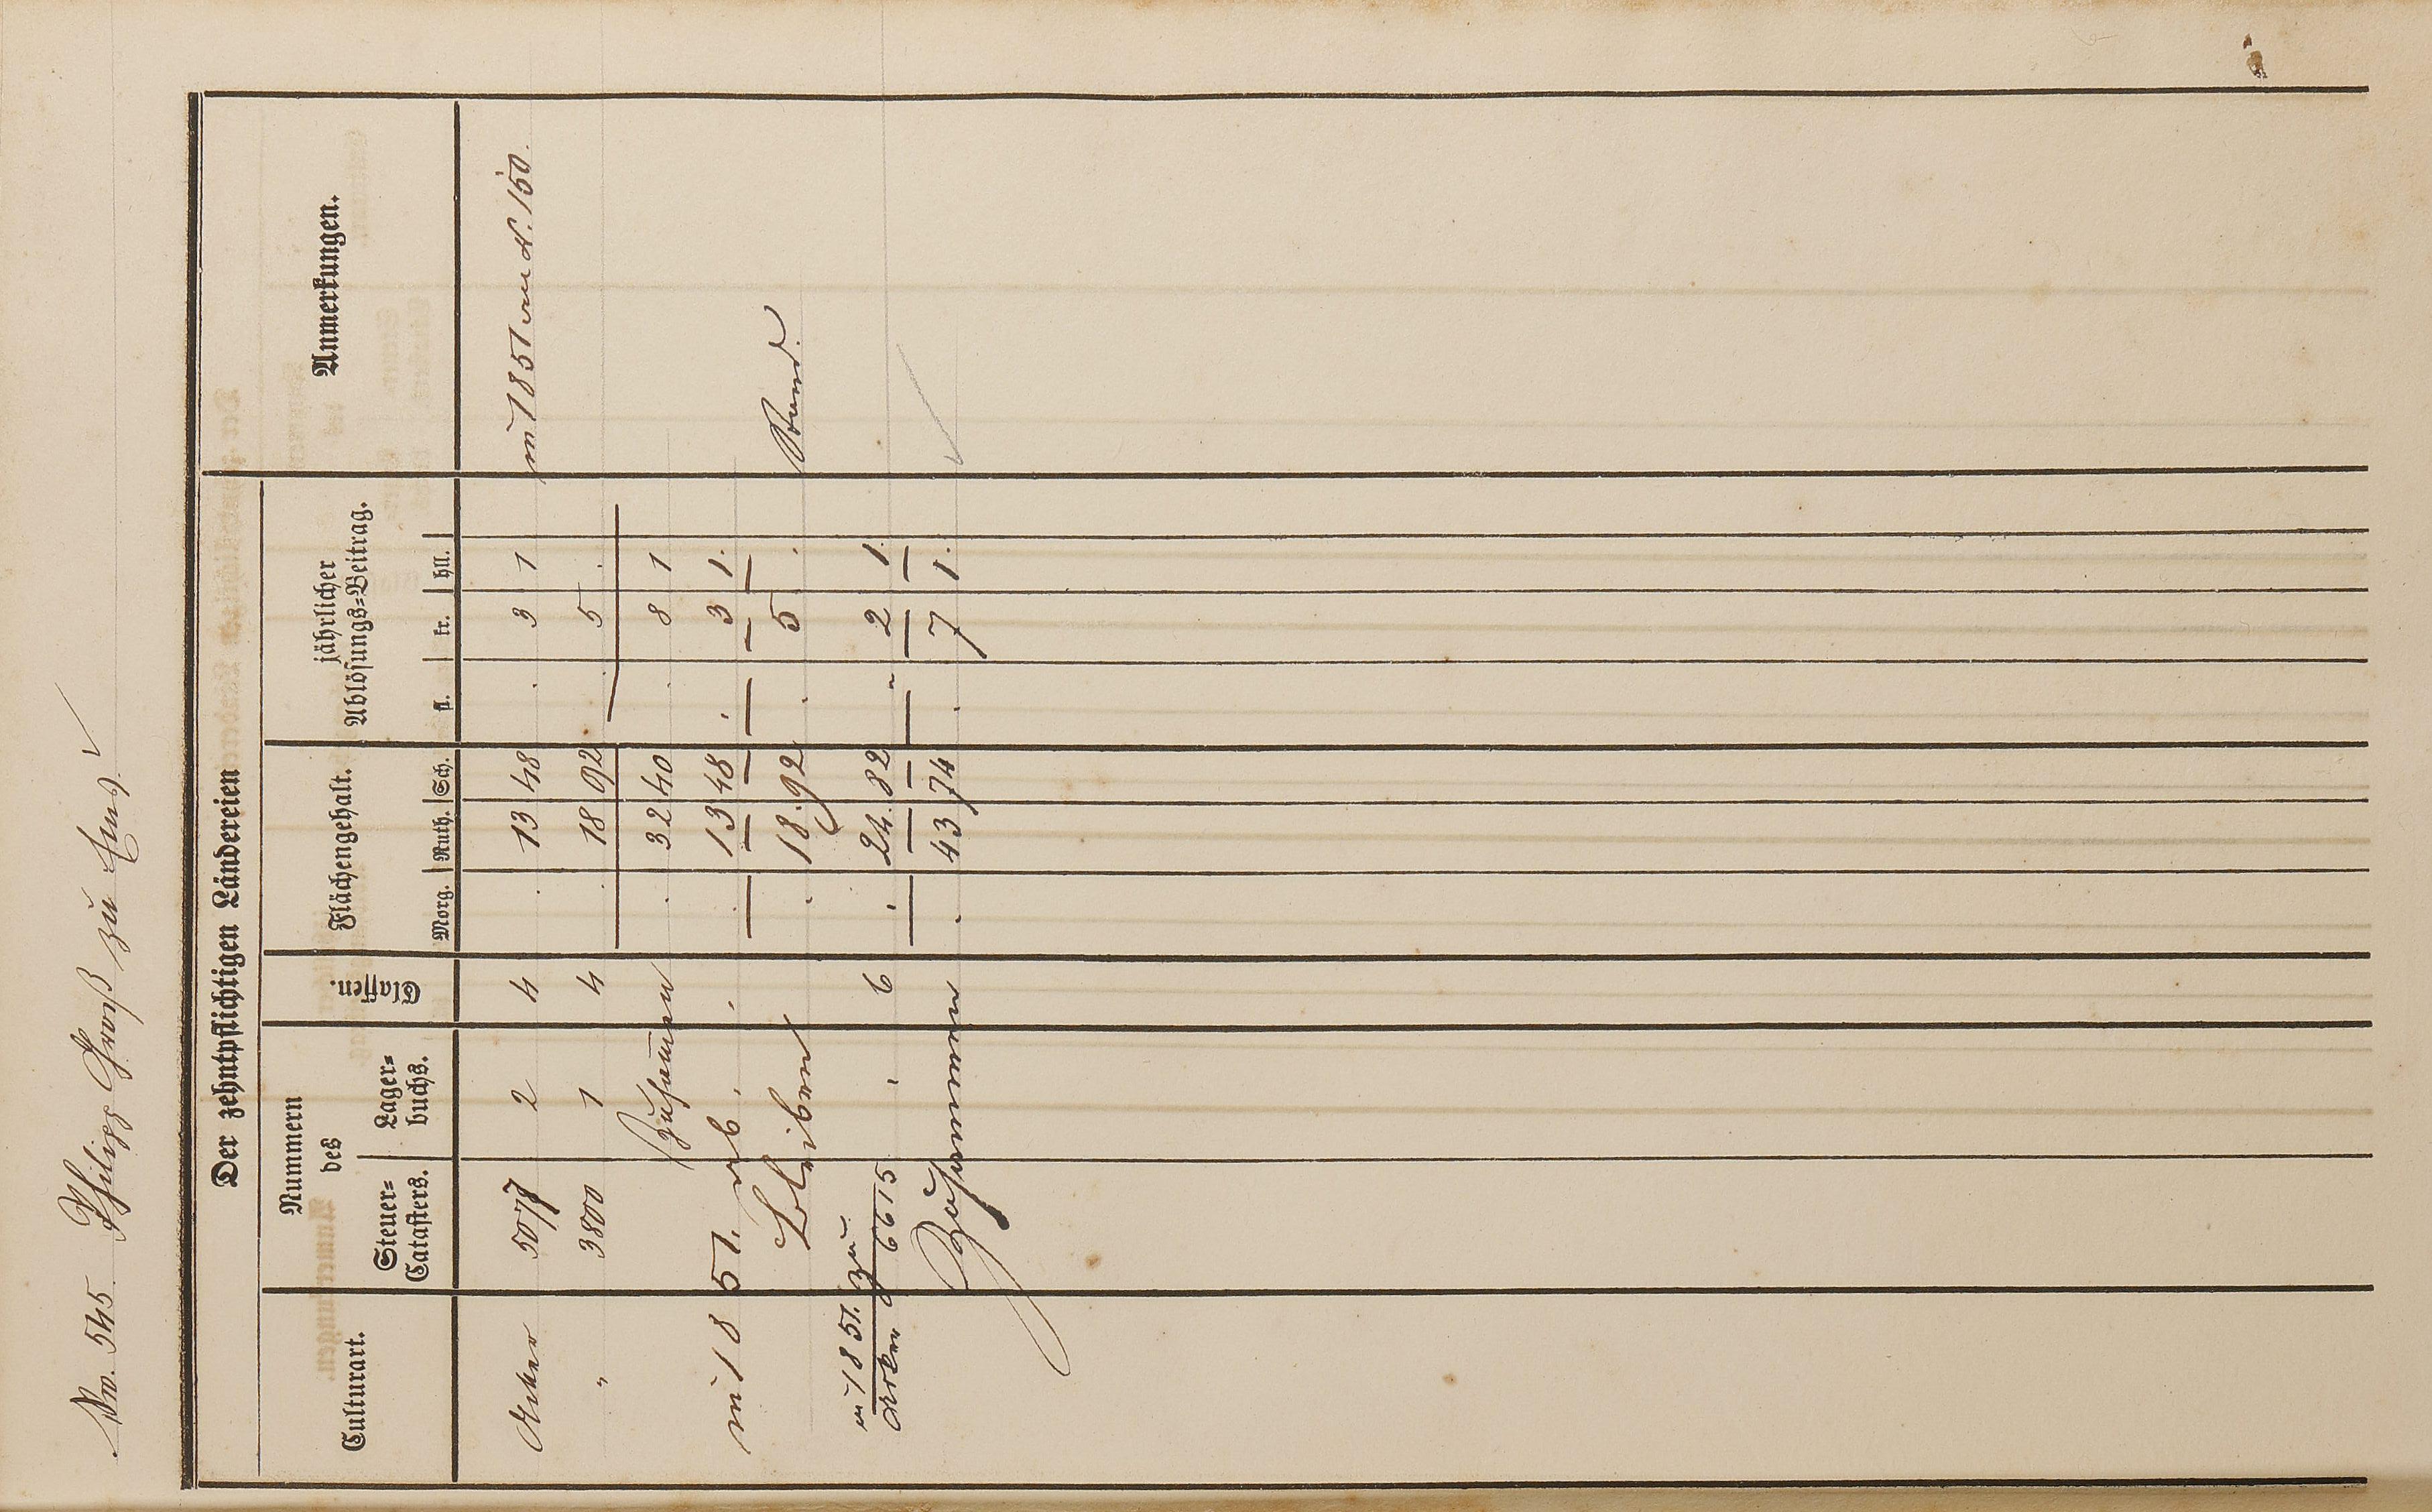 No. 545. Philipp Groß zu Ems.
Der zehntpflichtigen Ländereien
Culturart. Nummern des Steuer=Catasters. Lager=buchs. Classen. Flächengehalt. Morg. Ruth. Sch. jährlicher Ablösungs=Beitrag. fl. kr. hll. Anmerkungen.
Acker 5077 2 4 . 13 48 . 3 1 in 1851 an d. 150.
" 3800 1 4 . 18 92 . 5 .
Zusam̄en . 32 40 . 8 1
in 1851. ab . . . 13 48 . 3 1.
Bleiben . 18. 92 . 5 .
in 1851. zu
Acker 6615 . 6 . 24. 82 . 2 1.
Zusammen . 43 74 . 7 1.